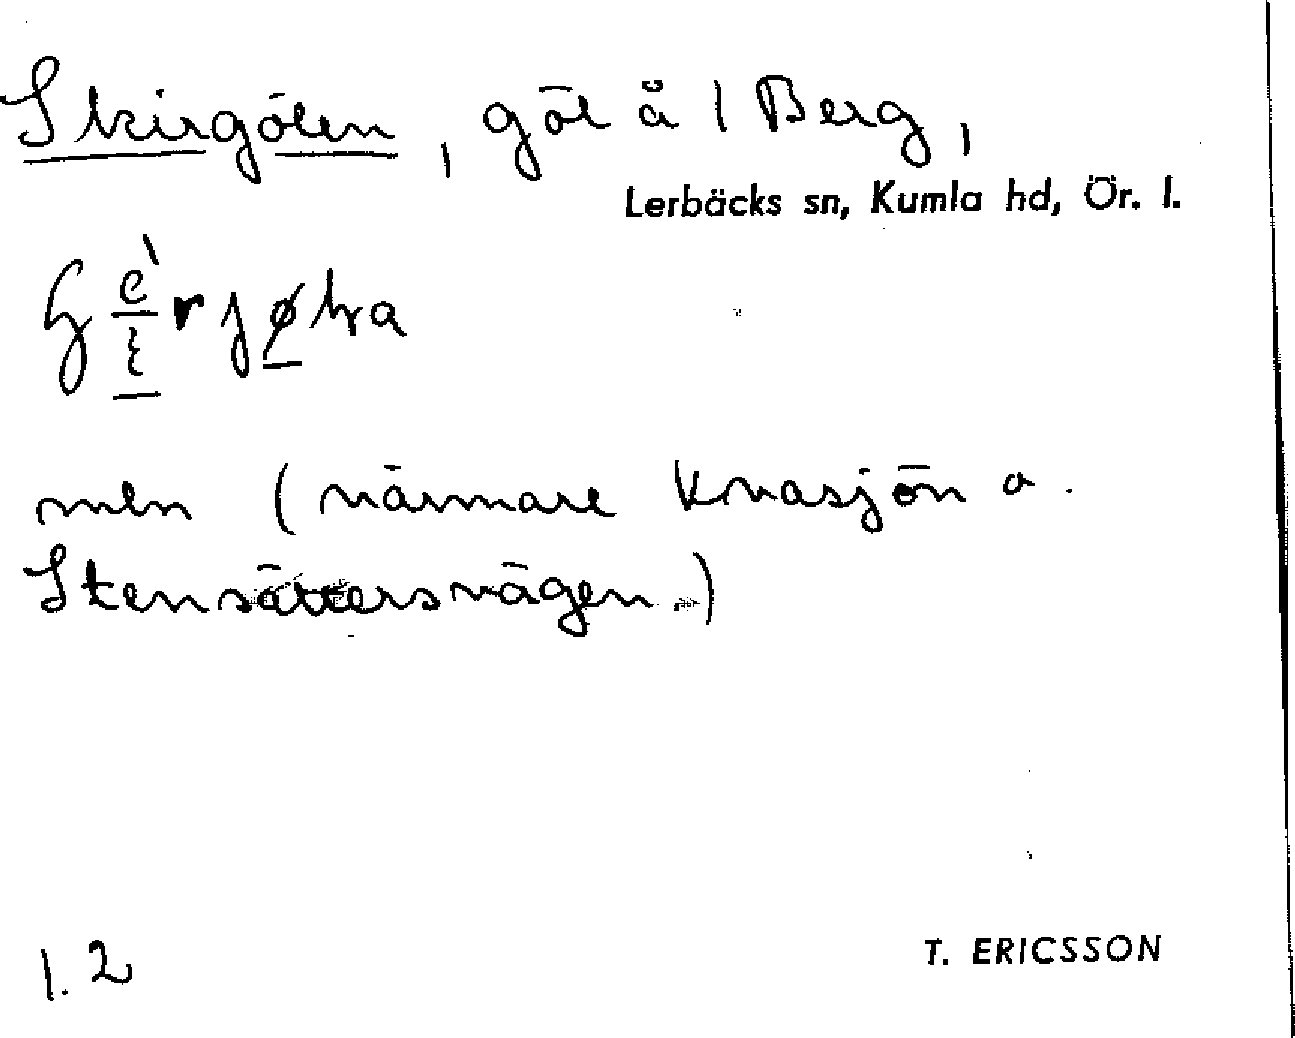 Skirgölen, göl å 1 Berg,
Lerbäcks sn, Kumla hd, Ör. l.
mln (närmare Knasjön o.
Stensättersvägen)
1.2
T. ERICSSON